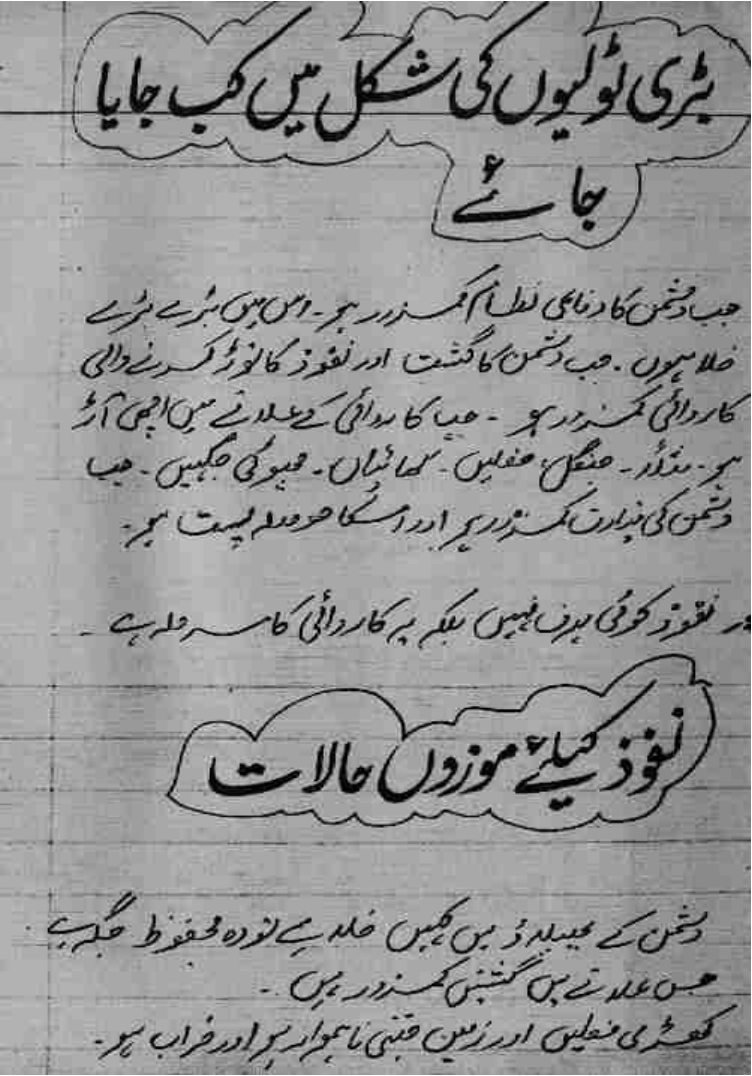 بڑی ٹولیوں کی شکل میں کب جایا
جائے
جب دشمن کا دفاعی نظام کمزور ہو۔ اس میں بڑے بڑے
خلا ہوں۔ جب دشمن کا گشت اور نفوذ کا توڑ کرنے والی
کاروائی کمزور ہو۔ جب کاروائی کے علاقے میں اچھی آڑ
ہو۔ جنگل، فصلیں۔ کھائیاں۔ چھپنے کی جگہیں۔ جب
دشمن کی کمزور ہو اور اسکا حوصلہ پست ہو۔
نفوذ کوئی ہدف نہیں بلکہ یہ کاروائی کا مرحلہ ہے۔
نفوذ کیلئے موزوں حالات
دشمن کے پھیلاؤ میں کہیں خلا ہے تو وہ محفوظ جگہ ہے
جس علاقے میں گشتیں کمزور ہوں۔
کھڑی فصلیں اور زمین جتنی ناہموار ہو اور خراب ہو۔